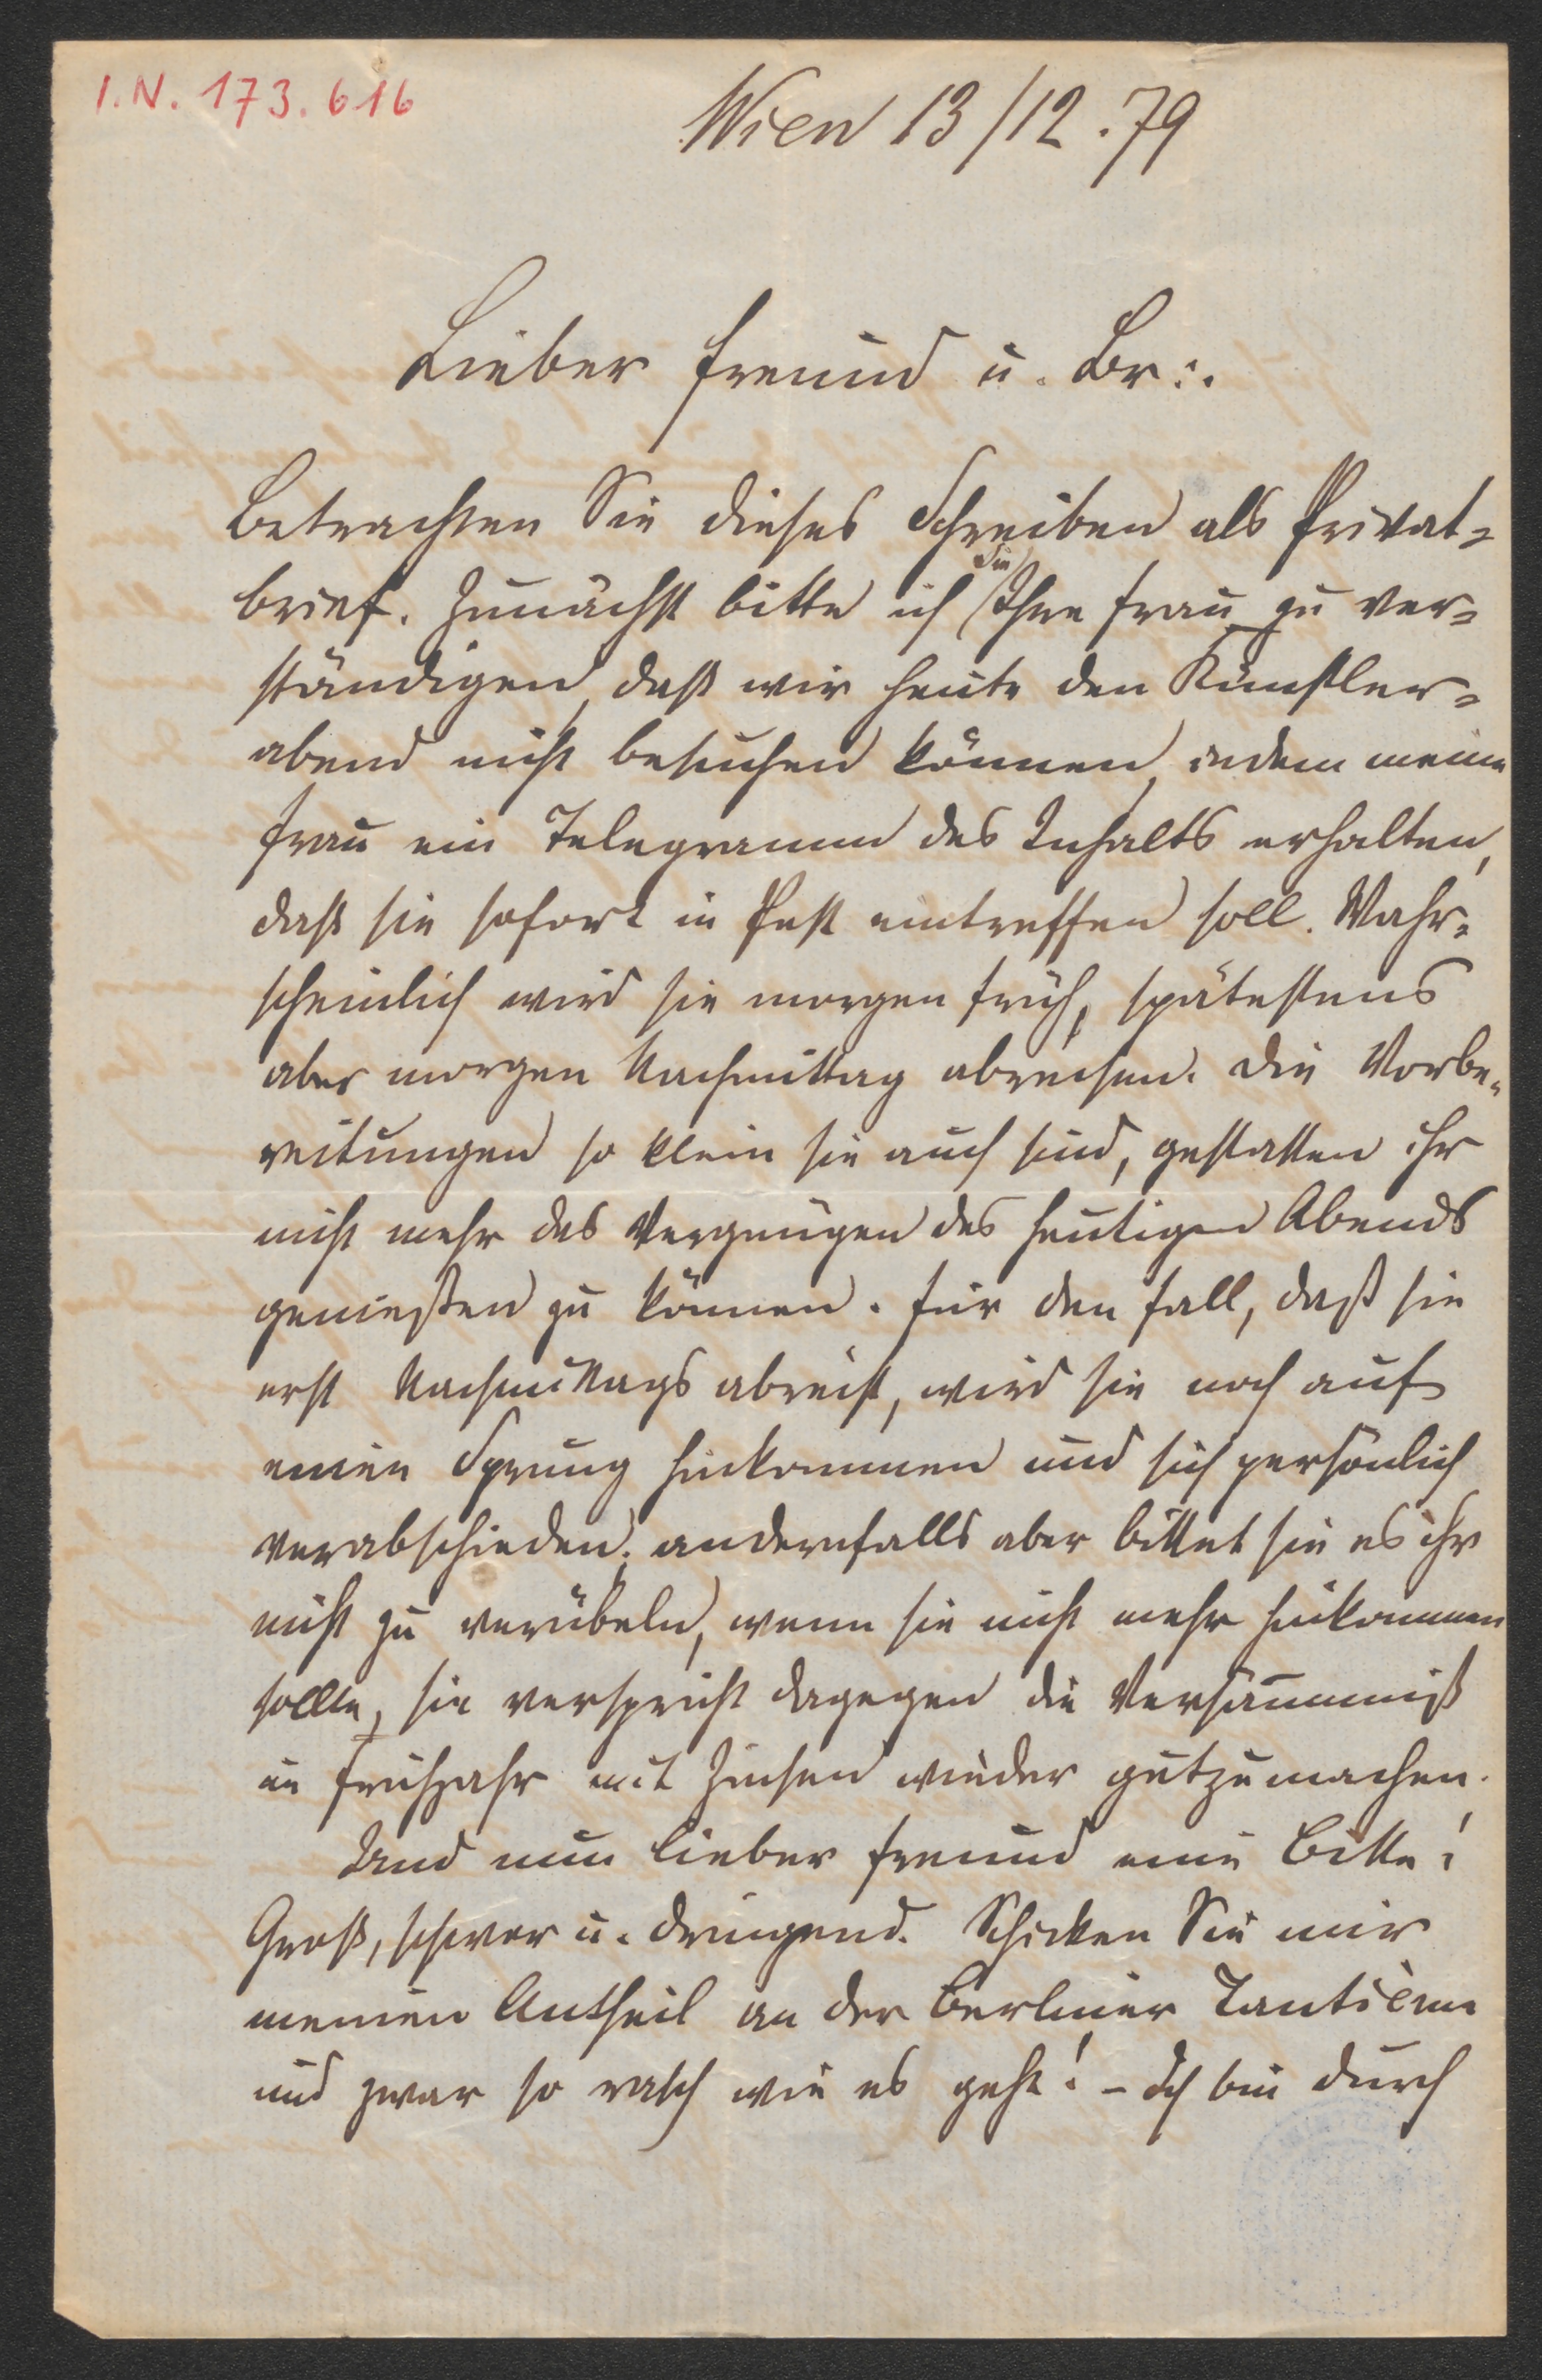 I.N. 173.616
Wien 13/12.79
Lieber Freund u. Br∴
Betrachten Sie dieses Schreiben als Privat-
brief. Zunächst bitte ich Sie Ihre Frau zu ver-
ständigen, daß wir heute den Künstler-
abend nicht besuchen können, indem meine
Frau ein Telegramm des Inhalts erhalten,
daß sie sofort in Pest eintreffen soll. Wahr-
scheinlich wird sie morgen früh, spätestens
aber morgen Nachmittag abreisen. Die Vorbe-
reitungen so klein sie auch sind, gestatten ihr
nicht mehr das Vergnügen des heutigen Abends
genießen zu können. Für den Fall, daß sie
erst Nachmittags abreist, wird sie noch auf
einen Sprung hinkommen und sich persönlich
verabschieden; andernfalls aber bittet sie es ihr
nicht zu verübeln, wenn sie nicht mehr hinkommen
sollte, sie verspricht dagegen die Versäumniß
im Frühjahr mit Zinsen wieder gutzumachen.
Und nun lieber Freund eine Bitte!
Groß, schwer u. dringend. Schicken Sie mir
meinen Antheil an der Berliner Tantième
und zwar so rasch wie es geht! – Ich bin durch